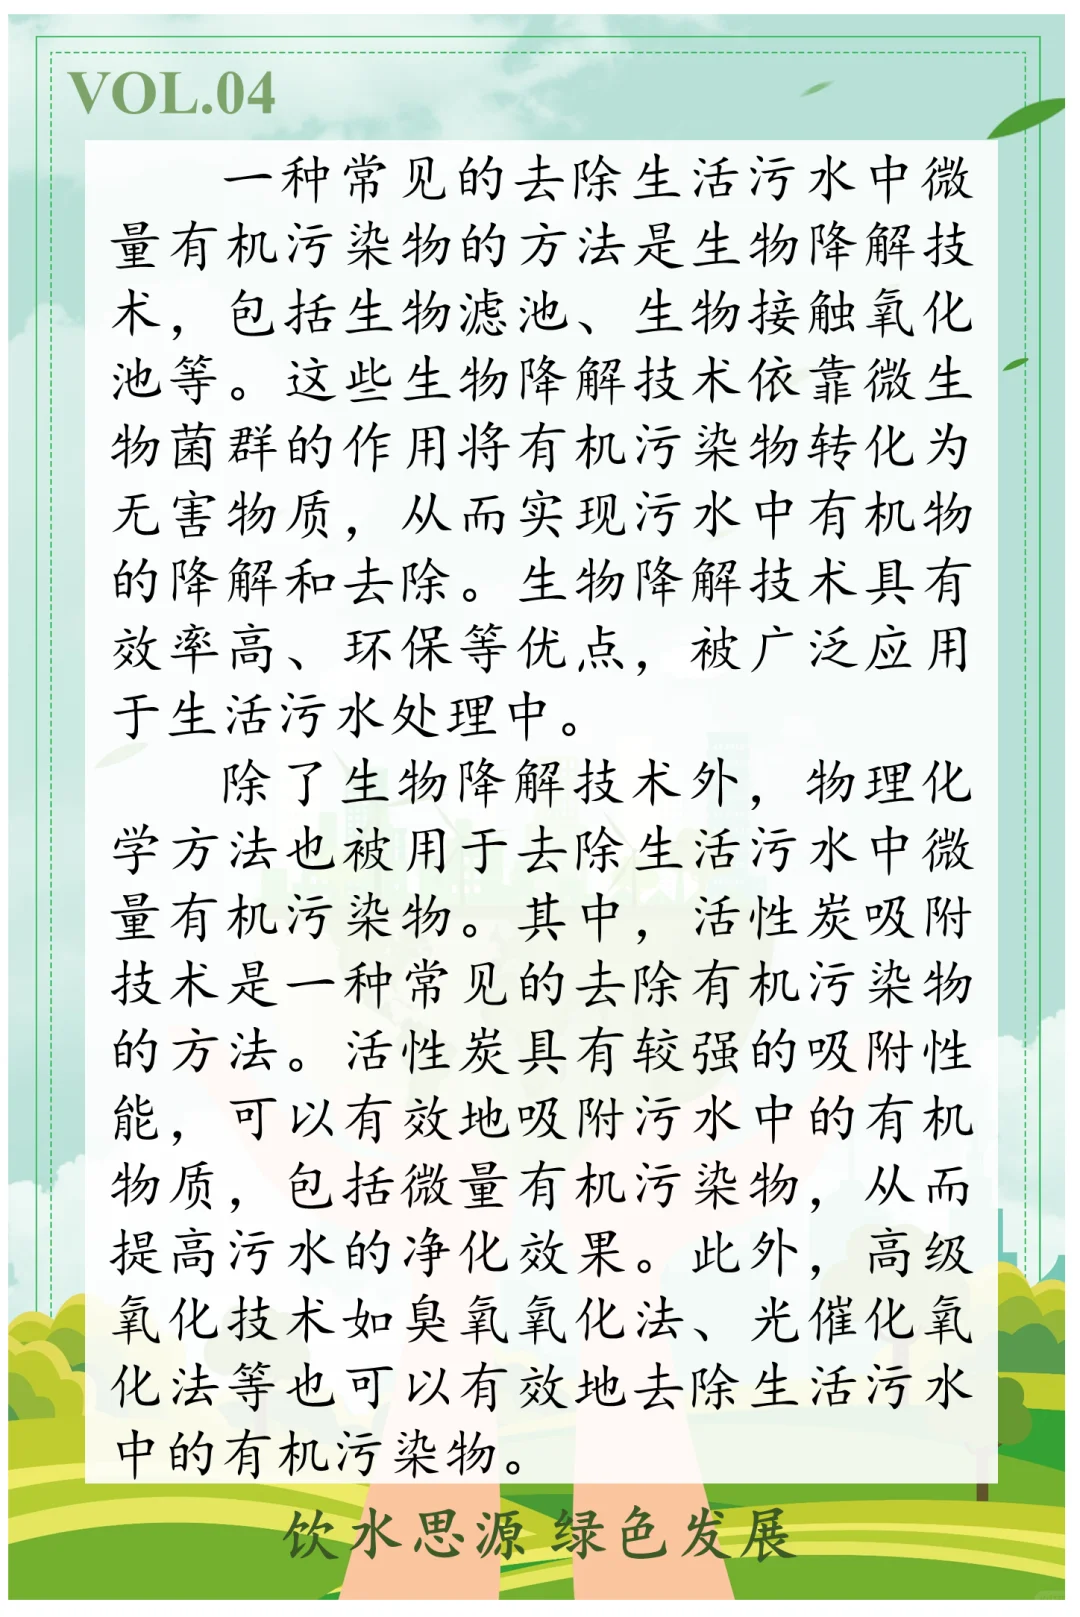 VOL.04
一种常见的去除生活污水中微
量有机污染物的方法是生物降解技
术，包括生物滤池、生物接触氧化
池等。这些生物降解技术依靠微生
物菌群的作用将有机污染物转化为
无害物质，从而实现污水中有机物
的降解和去除。生物降解技术具有
效率高、环保等优点，被广泛应用
于生活污水处理中。
除了生物降解技术外，物理化
学方法也被用于去除生活污水中微
量有机污染物。其中，活性炭吸附
技术是一种常见的去除有机污染物
的方法。活性炭具有较强的吸附性
能，可以有效地吸附污水中的有机
物质，包括微量有机污染物，从而
提高污水的净化效果。此外，高级
氧化技术如臭氧氧化法、光催化氧
化法等也可以有效地去除生活污水
中的有机污染物。
饮水思源 绿色发展